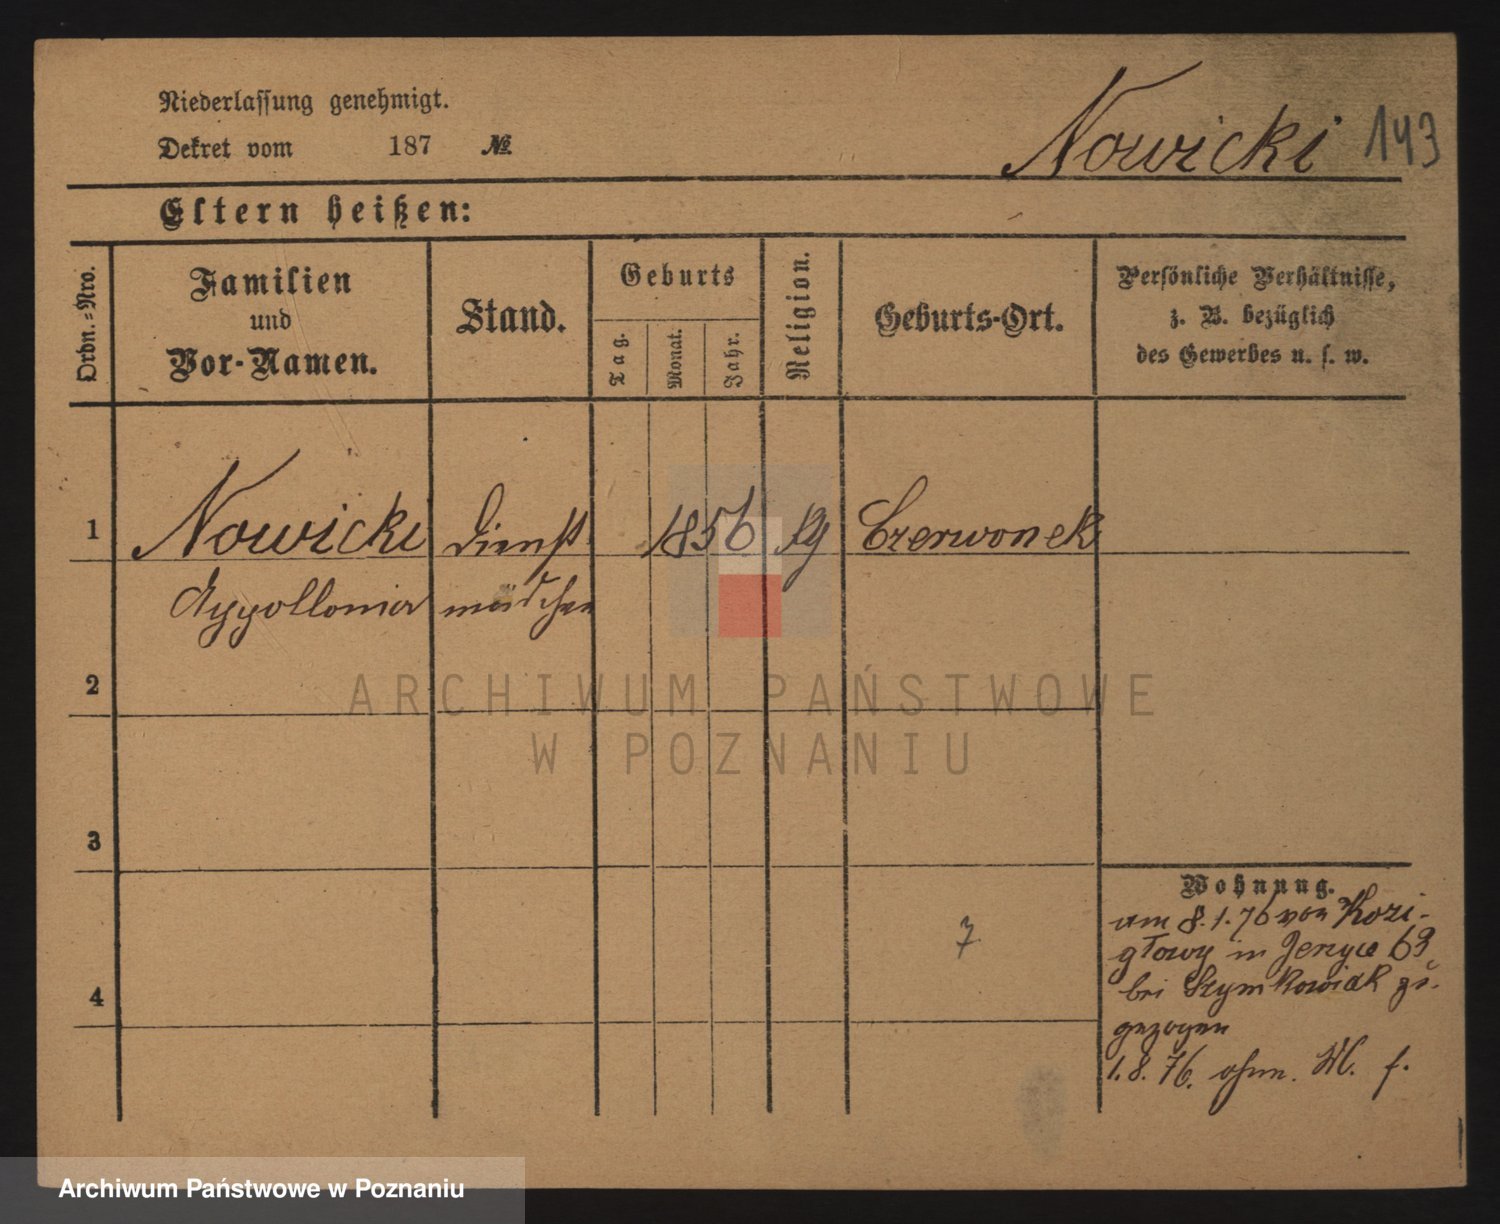 Niederlassung genehmigt.
Dekret vom 187 №
Nowicki 143
Eltern heißen:
Ordn.-Nro.
Familien
und
Vor-Namen.
Stand.
Geburts
Tag.
Monat.
Jahr.
Religion.
Geburts-Ort.
Persönliche Verhältnisse,
z. B. bezüglich
des Gewerbes u. s. w.
1 Nowicki Dienst 1856 Czerwonek
Appollonia mädchen
2
3
4
7
Wohnung.
am 8.1.76 von Kozi-
głowy in Jerzyce 69
bei Szymkowiak zu-
gezogen
1.8.76.
ARCHIWUM PAŃSTWOWE
W POZNANIU
Archiwum Państwowe w Poznaniu